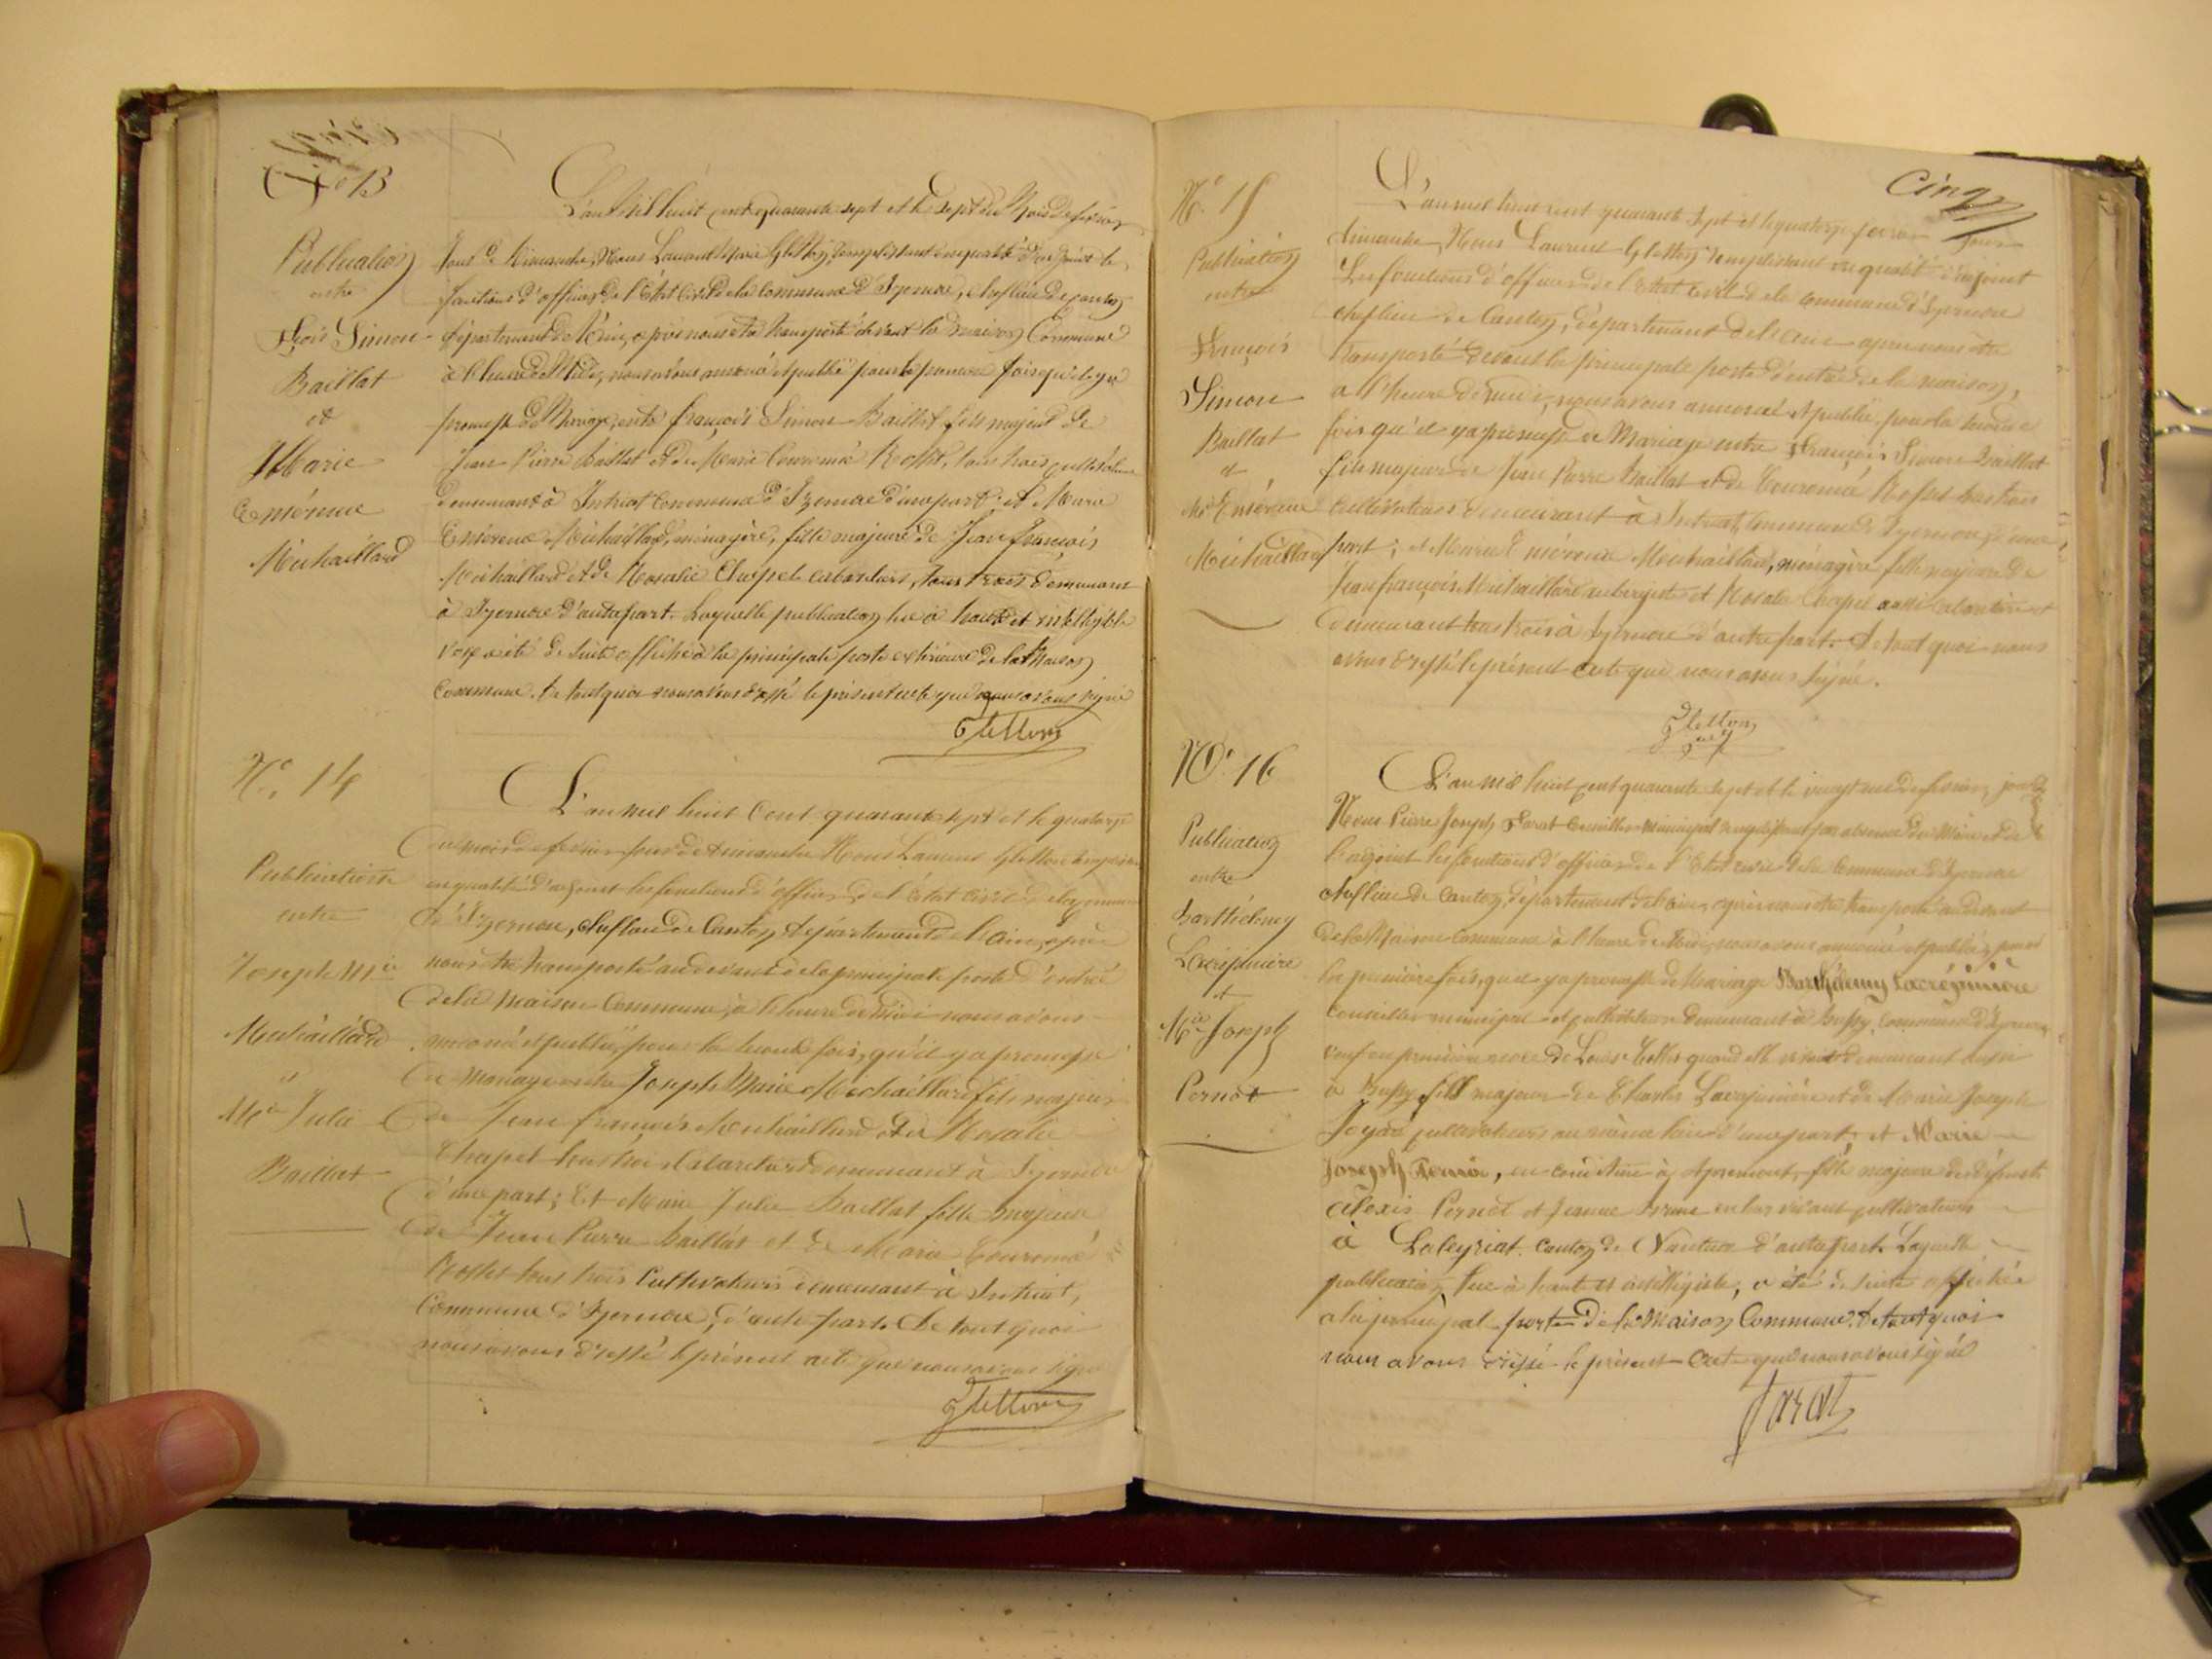 No 13
Publication
entre
Fçois Simon
Baillat
et
Marie
Enémence
Michaillard
L'an Mil huit cent quarante sept et le sept du Mois de février
Jour de Dimanche, Nous Laurent Marie Gletton, remplissant en qualité d'adjoint les
fonctions d'officier de l'état Civil de la Commune d'Izernore, chef lieu de canton
département de l'Ain, après nous être transporté devant la maison Commune
à l'heure de Midi, nous avons annoncé et publié pour la première fois qu'il y a
promesse de Mariage entre françois Simon Baillat fils majeur de
Jean Pierre Baillat et de Marie Couronné Rosset, tous trois cultivateurs
demeurant à Intriat Commune d'Izernore d'une part; et Marie
Michaillard, ménagère, fille majeure de Jean françois
Michaillard et de Rosalie Chapel cabaretiers, tous trois demeurant
à Izernore d'autre part. Laquelle publication lue à haute et intelligible
voix a été de suite affichée à la principale porte extérieure de la Maison
Commune. De tout quoi nous avons dressé le présent acte que nous avons signé
Gletton
No. 14
Publication
entre
Joseph Mie
Michaillard
et
Mie Julie
Baillat
L'an mil huit Cent quarante sept et le quatorze
du mois de février jour de dimanche Nous Laurent Gletton remplissant
en qualité d'adjoint les fonctions d'officier de l'état Civil de la commune
d'Izernore, chef lieu de Canton département de l'Ain, après
nous être transporté au devant de la principale porte d'entrée
de la maison Commune, à l'heure de Midi nous avons
annoncé et publié, pour la seconde fois, qu'il y a promesse
de mariage entre Joseph Marie Michaillard fils majeur
de Jean françois Michaillard et de Rosalie
Chapel tous trois Cabaretiers demeurant à Izernore
d'une part; Et Marie Julie Baillat fille majeure
de Jean Pierre Baillat et de Marie Couronné
Rosset tous trois Cultivateurs demeurant à Intriat,
Commune d'Izernore, d'autre part. De tout quoi
nous avons dressé le présent acte que nous avons signé
Gletton
Cinq
No. 15
Publication
entre
François
Simon
Baillat
et
Mie
Michaillard
L'an mil huit cent quarante sept et le quatorze février Jour
dimanche, Nous Laurent Gletton remplissant en qualité d'adjoint
Les fonctions d'officier de l'état civil de la commune d'Izernore
chef lieu de Canton, département de l'Ain après nous être
transporté devant la principale porte d'entrée de la maison,
à l'heure de midi, nous avons annoncé et publié pour la seconde
fois qu'il y a promesse de Mariage entre François Simon Baillat
fils majeur de Jean Pierre Baillat et de Couronné Rosset tous trois
cultivateurs demeurant à Intriat, commune d'Izernore, d'une
part; et Marie Michaillard, ménagère fille majeure de
Jean françois Michaillard aubergiste et Rosalie Chapel aussi cabaretière
demeurant tous trois à Izernore d'autre part. De tout quoi nous
avons dressé le présent acte que nous avons signé.
Gletton
No. 16
Publication
entre
Barthélemy
Lacrépinière
et
Mie Joseph
Pernot
L'an mil huit cent quarante sept et le vingt un de février, jour
Nous Pierre Joseph Farat Conseiller Municipal remplissant par absence du Maire et de
l'adjoint les fonctions d'officier de l'Etat civil de la Commune d'Izernore
chef lieu de Canton, département de l'Ain, après nous être transporté au devant
de la Maison Commune à l'heure de Midi, nous avons annoncé et publié, pour
la première fois, qu'il y a promesse de Mariage Barthélemy Lacrépinière
Conseiller municipal et cultivateur demeurant à Bussy, Commune d'Izernore
veuf en première noce de Louise quand elle vivait demeurant aussi
à Bussy fils majeur de Charles Lacrépinière et de Marie Joseph
Joyard cultivateurs au même lieu d'une part; et Marie
Joseph Pernot, à Apremont, fille majeure des défunts
Alexis Pernot et Jeanne Brune en leur vivant cultivateurs
à Laleyriat canton de Nantua d'autre part. Laquelle
publication lue à haute et intelligible, a été de suite affichée
à la principal porte de la Maison Commune. De tout quoi
nous avons dressé le présent acte que nous avons signé
Farat